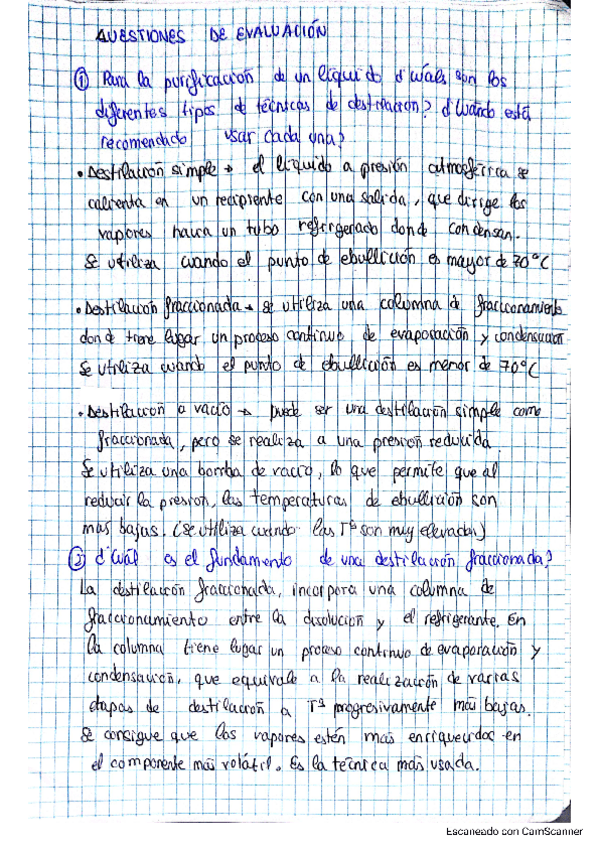 CUESTIONES DE EVALUACIÓN
① Para la purificación de un líquido ¿Cuáles son los
diferentes tipos de técnicas de destilación? ¿Cuándo está
recomendado usar cada una?
• Destilación simple → el líquido a presión atmosférica se
calienta en un recipiente con una salida, que dirige los
vapores hacia un tubo refrigerado donde condensan.
Se utiliza cuando el punto de ebullición es mayor de 70°C
• Destilación fraccionada → se utiliza una columna de fraccionamiento
donde tiene lugar un proceso continuo de evaporación y condensación
Se utiliza cuando el punto de ebullición es menor de 70°C
• Destilación a vacío → puede ser una destilación simple como
fraccionada, pero se realiza a una presión reducida.
Se utiliza una bomba de vacío, lo que permite que al
reducir la presión, las temperaturas de ebullición son
mas bajas. (se utiliza cuando las Tª son muy elevadas)
② ¿Cuál es el fundamento de una destilación fraccionada?
La destilación fraccionada, incorpora una columna de
fraccionamiento entre la disolución y el refrigerante. En
la columna tiene lugar un proceso continuo de evaporación y
condensación, que equivale a la realización de varias
etapas de destilación a Tª progresivamente más bajas.
Se consigue que los vapores estén más enriquecidos en
el componente más volátil. Es la técnica más usada.
Escaneado con CamScanner